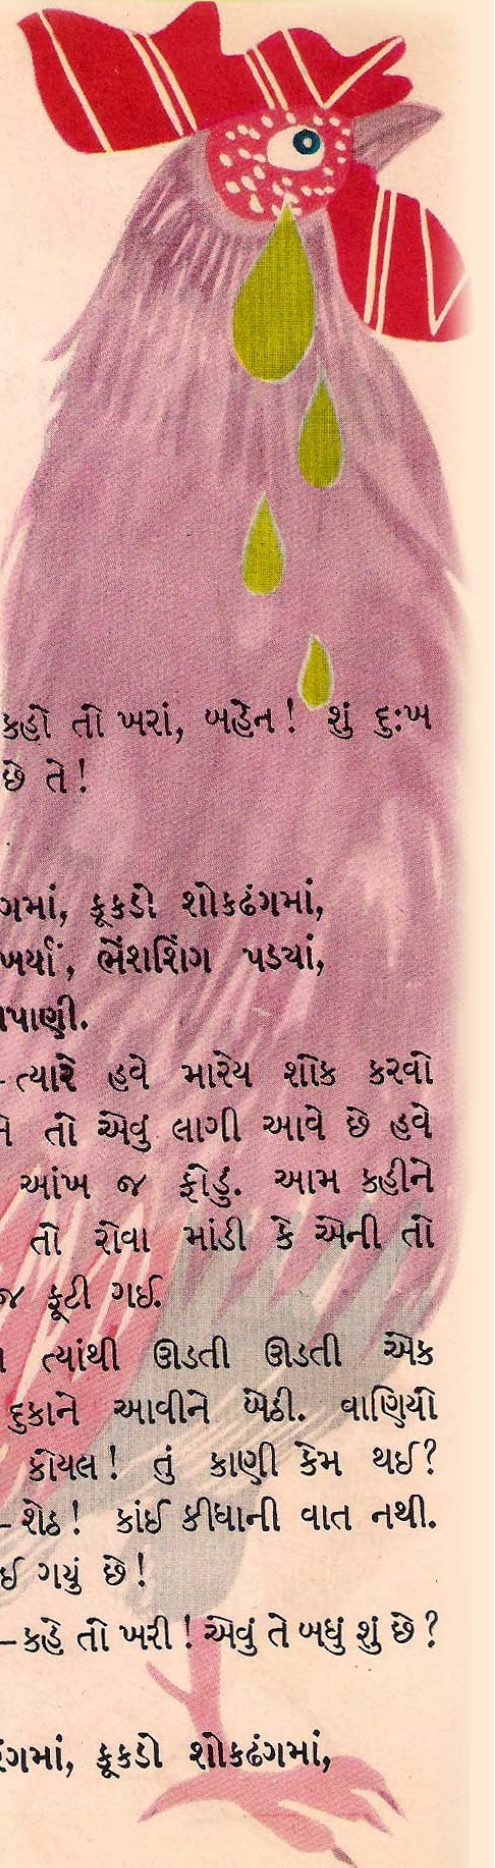 કહો તો ખરાં, બહેન! શું દુઃખ
છે તે!
કૂકડો શોકઢંગમાં,
ભેંશશિંગ પડયાં,
ત્યારે હવે મારેય શોક કરવો
તો એવું લાગી આવે છે હવે
આંખ જ ફોડું. આમ કહીને
તો રોવા માંડી કે એની તો
જ ફૂટી ગઈ.
ત્યાંથી ઊડતી ઊડતી એક
દુકાને આવીને બેઠી. વાણિયો
કોયલ! તું કાણી કેમ થઈ?
–શેઠ! કાંઈ કીધાની વાત નથી.
ગયું છે!
–કહે તો ખરી! એવું તે બધું શું છે?
કૂકડો શોકઢંગમાં,